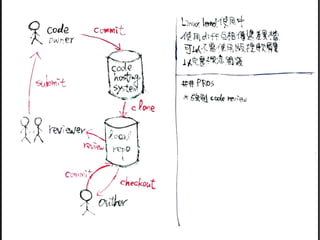 code
owner
commit
code
hosting
system
submit
clone
reviewer
review
local
repo
commit
checkout
author
Linux kernel 使用中
使用 diff 包裝傳遞差異檔
可以不靠
以完整
## PROS
code review